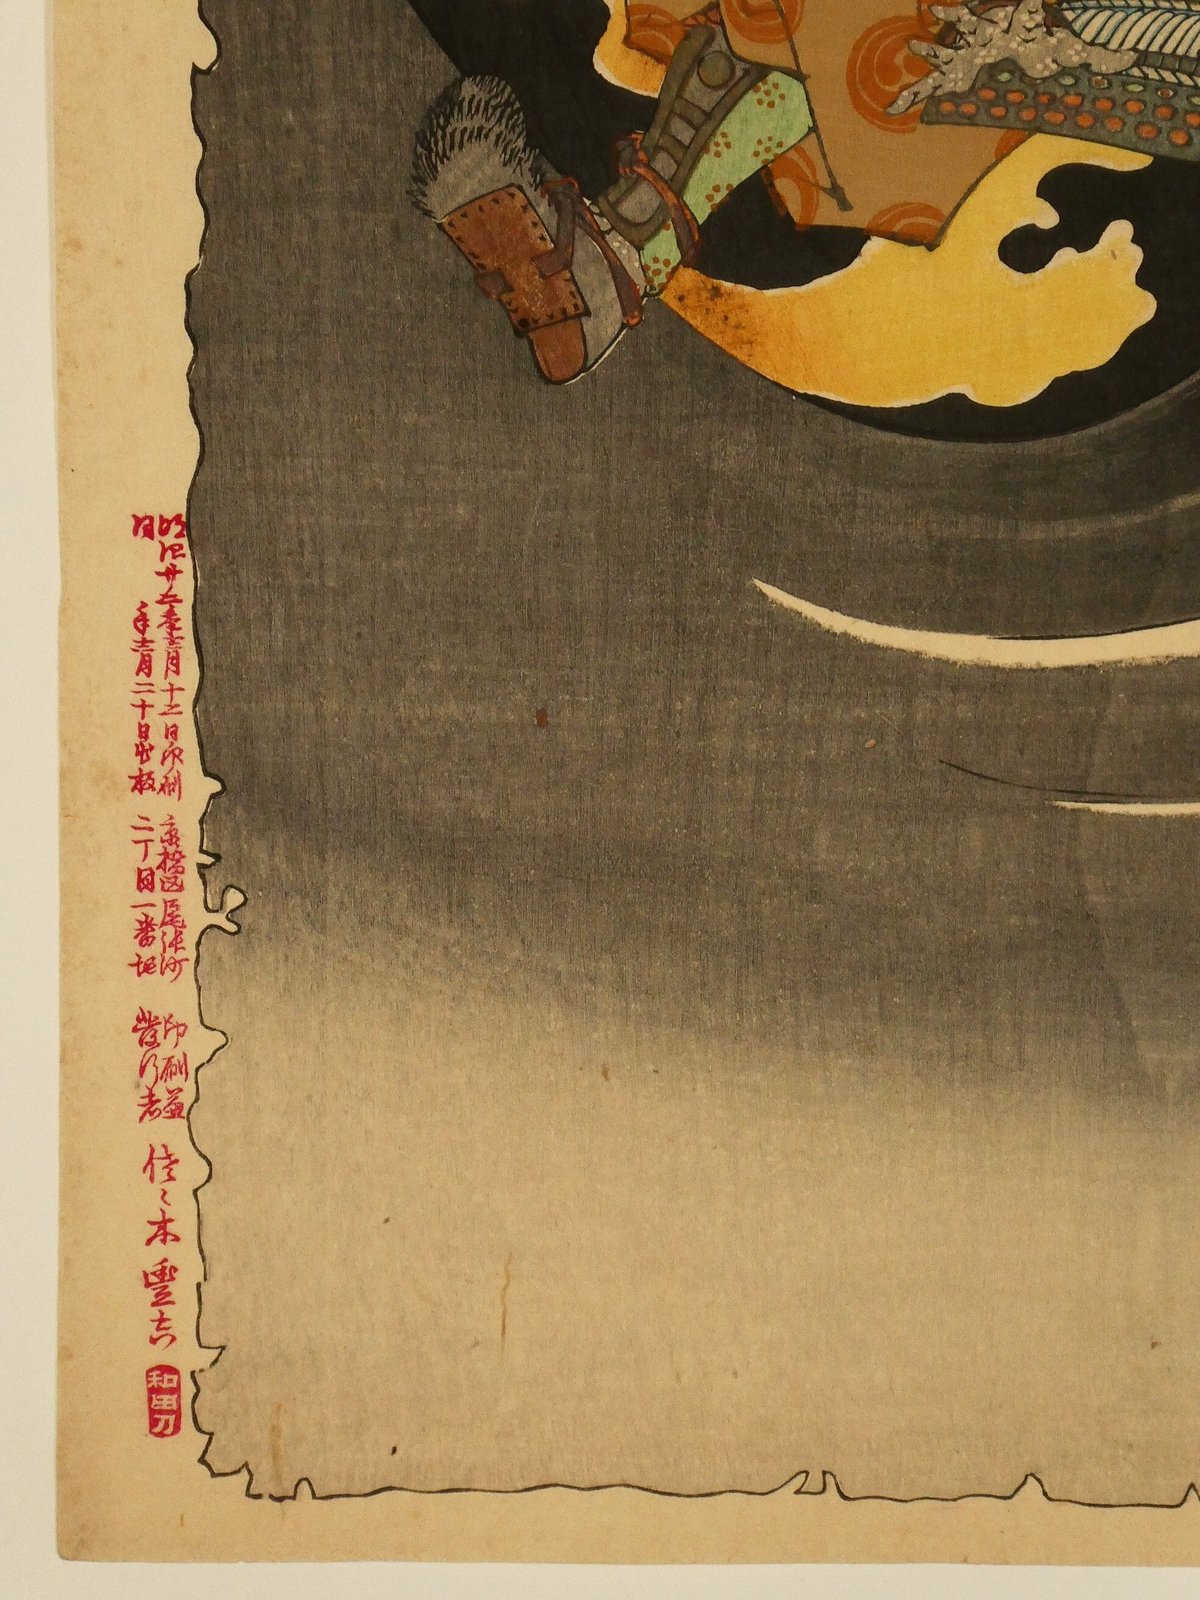 明治廿五年十二月十二日印刷
同年十二月二十日出板
京橋区尾張町
二丁目一番地
印刷兼
發行者
佐々木豊吉
和田刀